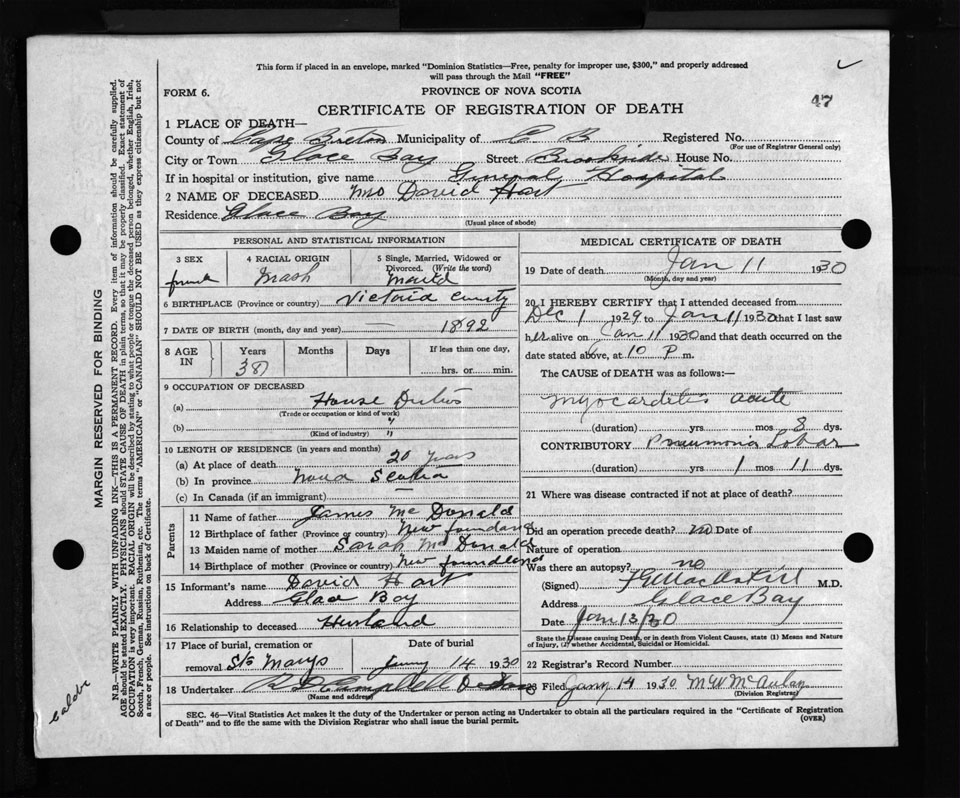 This form if placed in an envelope, marked "Dominion Statistics—Free, penalty for improper use, $300," and properly addressed
will pass through the Mail "FREE"
FORM 6.
PROVINCE OF NOVA SCOTIA
47
CERTIFICATE OF REGISTRATION OF DEATH
1 PLACE OF DEATH—
County of Cape Breton Municipality of C B Registered No.
(For use of Registrar General only)
City or Town Glace Bay Street Brookside House No.
If in hospital or institution, give name General Hospital
2 NAME OF DECEASED Mrs David Hart
Residence Glace Bay
(Usual place of abode)
PERSONAL AND STATISTICAL INFORMATION
3 SEX
4 RACIAL ORIGIN
5 Single, Married, Widowed or Divorced. (Write the word)
female
6 BIRTHPLACE (Province or country) Victoria County
7 DATE OF BIRTH (month, day and year) — 1892
8 AGE IN
Years Months Days If less than one day,
38 hrs. or min.
9 OCCUPATION OF DECEASED
(a) House Duties
(Trade or occupation or kind of work)
(b) " "
(Kind of industry)
10 LENGTH OF RESIDENCE (in years and months)
(a) At place of death 20 years
(b) In province Nova Scotia
(c) In Canada (if an immigrant) —
Parents
11 Name of father James McDonald
12 Birthplace of father (Province or country) Newfoundland
13 Maiden name of mother Sarah McDonald
14 Birthplace of mother (Province or country) Newfoundland
15 Informant's name David Hart
Address Glace Bay
16 Relationship to deceased Husband
17 Place of burial, cremation or Date of burial
removal St Marys Jany 14 1930
18 Undertaker
(Name and address)
MEDICAL CERTIFICATE OF DEATH
19 Date of death Jan 11 1930
(Month, day and year)
20 I HEREBY CERTIFY that I attended deceased from
Dec 1 1929 to Jan 11 1930 that I last saw
her alive on Jan 11 1930 and that death occurred on the
date stated above, at 10 P m.
The CAUSE of DEATH was as follows:—
Myocarditis acute
(duration) yrs mos 8 dys.
CONTRIBUTORY Pneumonia Lobar
(duration) yrs 1 mos 11 dys.
21 Where was disease contracted if not at place of death?
Did an operation precede death? no Date of
Nature of operation
Was there an autopsy? no
(Signed) M.D.
Address Glace Bay
Date Jan 13/30
State the Disease causing Death, or in death from Violent Causes, state (1) Means and Nature
of Injury, (2) whether Accidental, Suicidal or Homicidal.
22 Registrar's Record Number
23 Filed Jany 14 1930 M W McAulay
(Division Registrar)
SEC. 46—Vital Statistics Act makes it the duty of the Undertaker or person acting as Undertaker to obtain all the particulars required in the "Certificate of Registration
of Death" and to file the same with the Division Registrar who shall issue the burial permit.
(OVER)
MARGIN RESERVED FOR BINDING
N.B.—WRITE PLAINLY WITH UNFADING INK—THIS IS A PERMANENT RECORD. Every item of information should be carefully supplied.
AGE should be stated EXACTLY. PHYSICIANS should STATE CAUSE OF DEATH in plain terms, so that it may be properly classified. Exact statement of
OCCUPATION is very important. RACIAL ORIGIN will be described by stating to what people or tongue the deceased person belonged, whether English, Irish,
Scotch, French, German, Russian, Ruthenian, etc. The terms "AMERICAN" or "CANADIAN" SHOULD NOT BE USED as they express citizenship but not
a race or people. See instructions on back of Certificate.